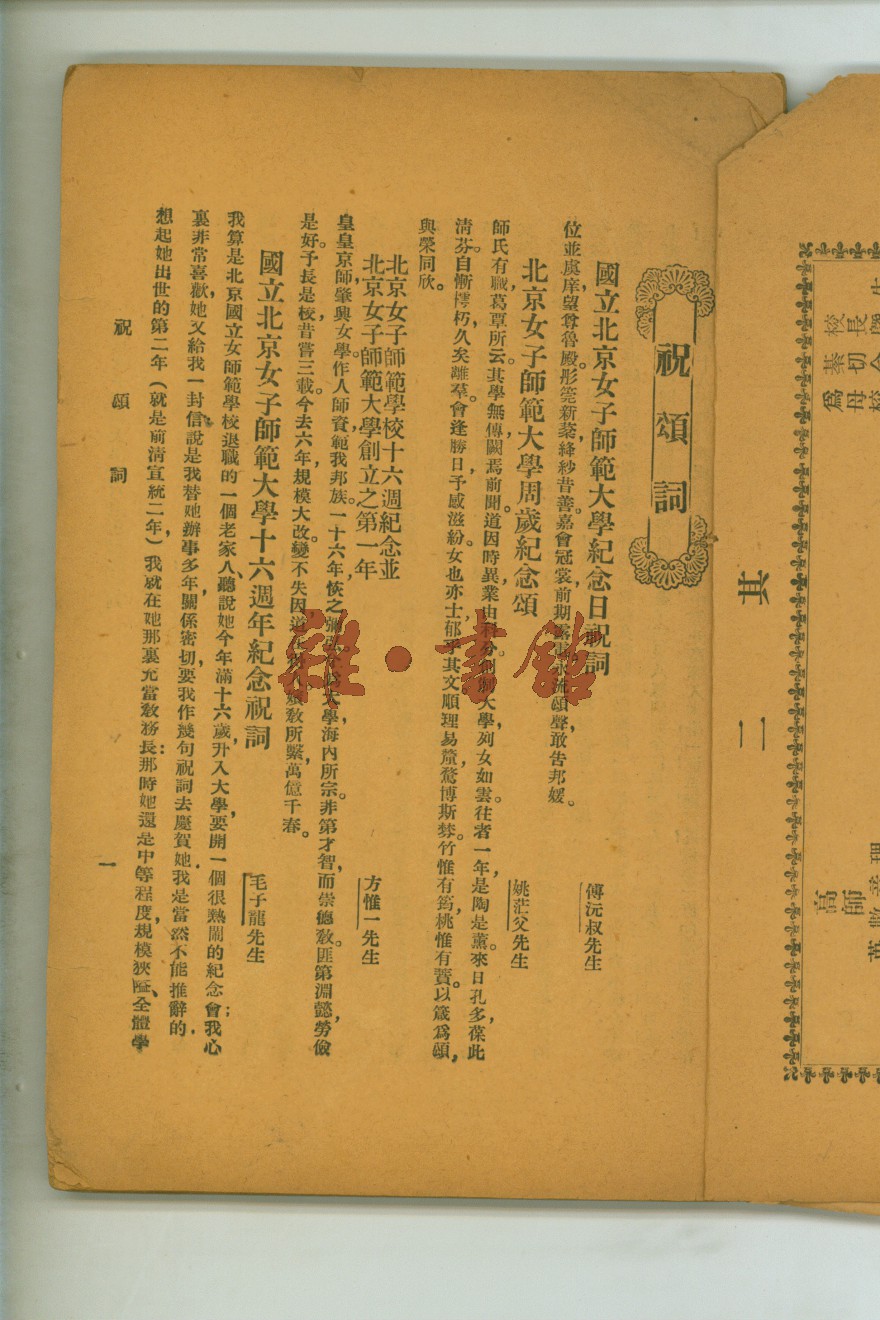 其二
祝頌詞
國立北京女子師範大學紀念日祝詞
傅沅叔先生
位並虞庠，望尊魯殿。彤筦新棻，絳紗昔善。嘉會冠裳，前期 流，頌聲敢告邦媛。
北京女子師範大學周歲紀念頌
姚茫父先生
師氏有職，葛覃所云。其學無傳，闕焉前聞。道因時異，業由 分。 大學，列女如雲。往者一年，是陶是薰。來日孔多，葆此
清芬。自慚樗朽，久矣離羣。會逢勝日，予感滋紛。女也亦士，郁乎其文。順理易 ，驁博斯棼。竹惟有筠，桃惟有蕡。以箴爲頌，
與榮同欣。
北京女子師範學校十六週紀念並
北京女子師範大學創立之第一年
方惟一先生
皇皇京師，肇興女學。作人師資，範我邦族。一十六年，恢之彌 大學，海内所宗。非第才智，而崇德教。匪第淵懿，勞儉
是好。予長是校，昔嘗三載。今去六年，規模大改。變不失因，道 教所繫，萬億千春。
國立北京女子師範大學十六週年紀念祝詞
毛子龍先生
我算是北京國立女師範學校退職的一個老家人，聽說她今年滿十六歲，升入大學，要開一個很熱鬧的紀念會；我心
裏非常喜歡，她又給我一封信，說是我替她辦事多年，關係密切，要我作幾句祝詞去慶賀她，我是當然不能推辭的．
想起她出世的第二年（就是前清宣統二年）我就在她那裏充當教務長，那時她還是中等程度，規模狹隘，全體學
祝頌詞
一
雜·書館
校長
爲母
高師